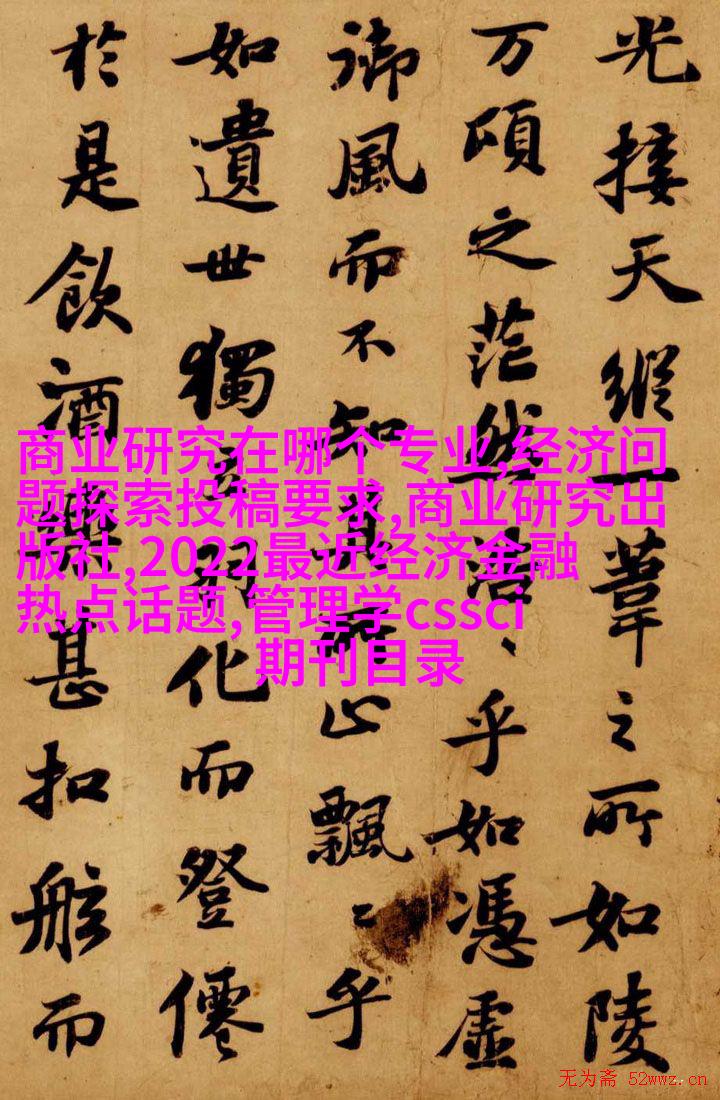 光接天縱一葦之所如陵
万頃之茫然浩〻乎如憑虛
御風而不知其所止飄〻乎
如遺世獨立羽化而登僊
於是飲酒樂甚扣舷而
商业研究在哪个专业,经济问
题探索投稿要求,商业研究出
版社,2022最近经济金融
热点话题,管理学cssci
期刊目录
无为斋 52wwz.cn